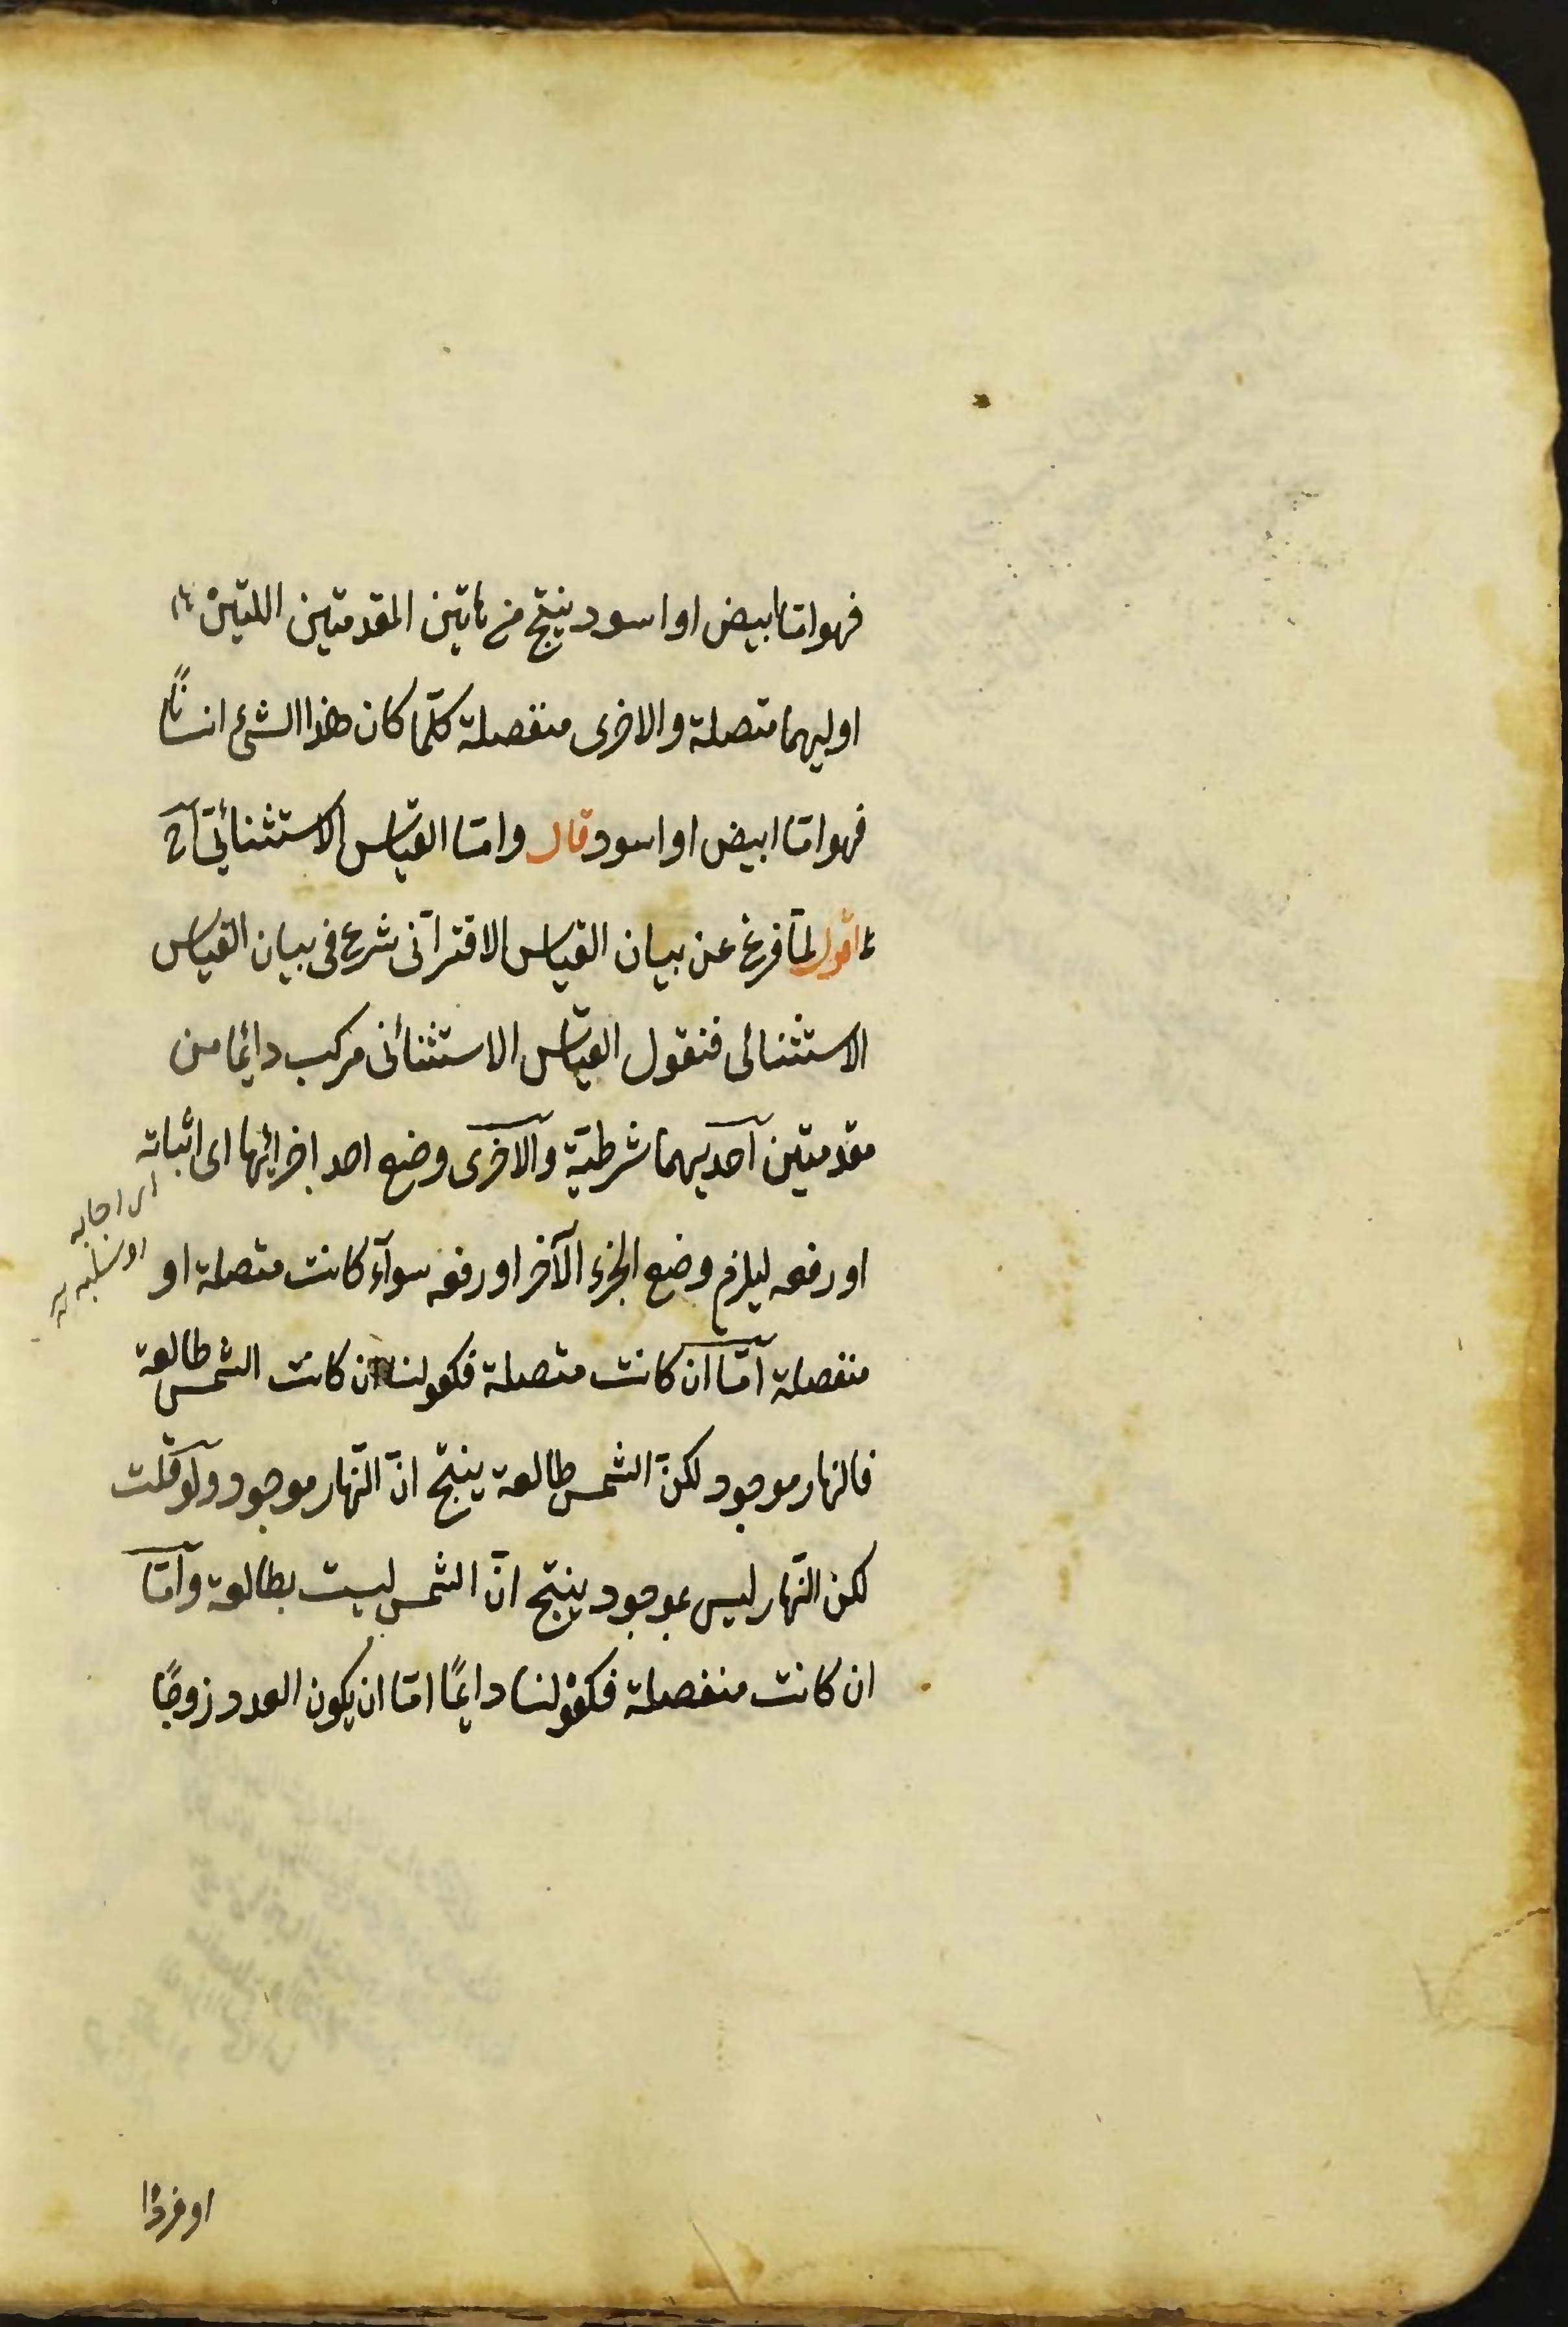 فهو اما ابيض او اسود ينتج من هاتين المقدمتين اللتين
اوليهما متصلة والاخرى منفصلة كلّما كان هذا الشئ انسانًا
فهو امّا ابيض او اسود قال وامّا القياس الاستثنائى آلخ
اقول لمّا فرغ عن بيان القياس الاقترانى شرع فى بيان القياس
الاستثنائى فنقول القياس الاستثنائى مركب دائما من
مقدمتين احديهما شرطيّة والاخرى وضع احد اجزائها اى اثباته
اى ايجابه
او سلبه
او رفعه ليلزم وضع الجزء الآخر او رفعه سوآء كانت متصلة او
منفصلة امّا ان كانت متصلة فكقولنا ان كانت الشمس طالعة
فالنهار موجود لكنّ الشمس طالعة ينتج انّ النّهار موجود ولو قلت
لكن النّهار ليس بموجود ينتج انّ الشمس ليست بطالعة وامّا
ان كانت منفصلة فكقولنا دايمًا امّا ان يكون العدد زوجًا
او فردًا